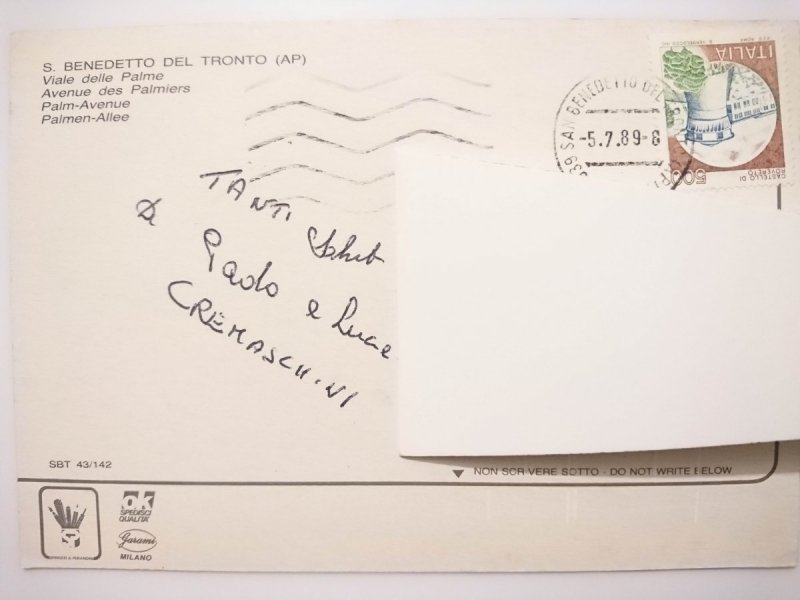 S. BENEDETTO DEL TRONTO (AP)
Viale delle Palme
Avenue des Palmiers
Palm-Avenue
Palmen-Allee
ITALIA
500
CASTELLO DI
ROVERETO
SAN BENEDETTO DEL
-5.7.89-8
TANTI
Da Paolo e
CREMASCHINI
SBT 43/142
NON SCRIVERE SOTTO - DO NOT WRITE BELOW
ok
SPEDISCI
QUALITA'
Garami
MILANO